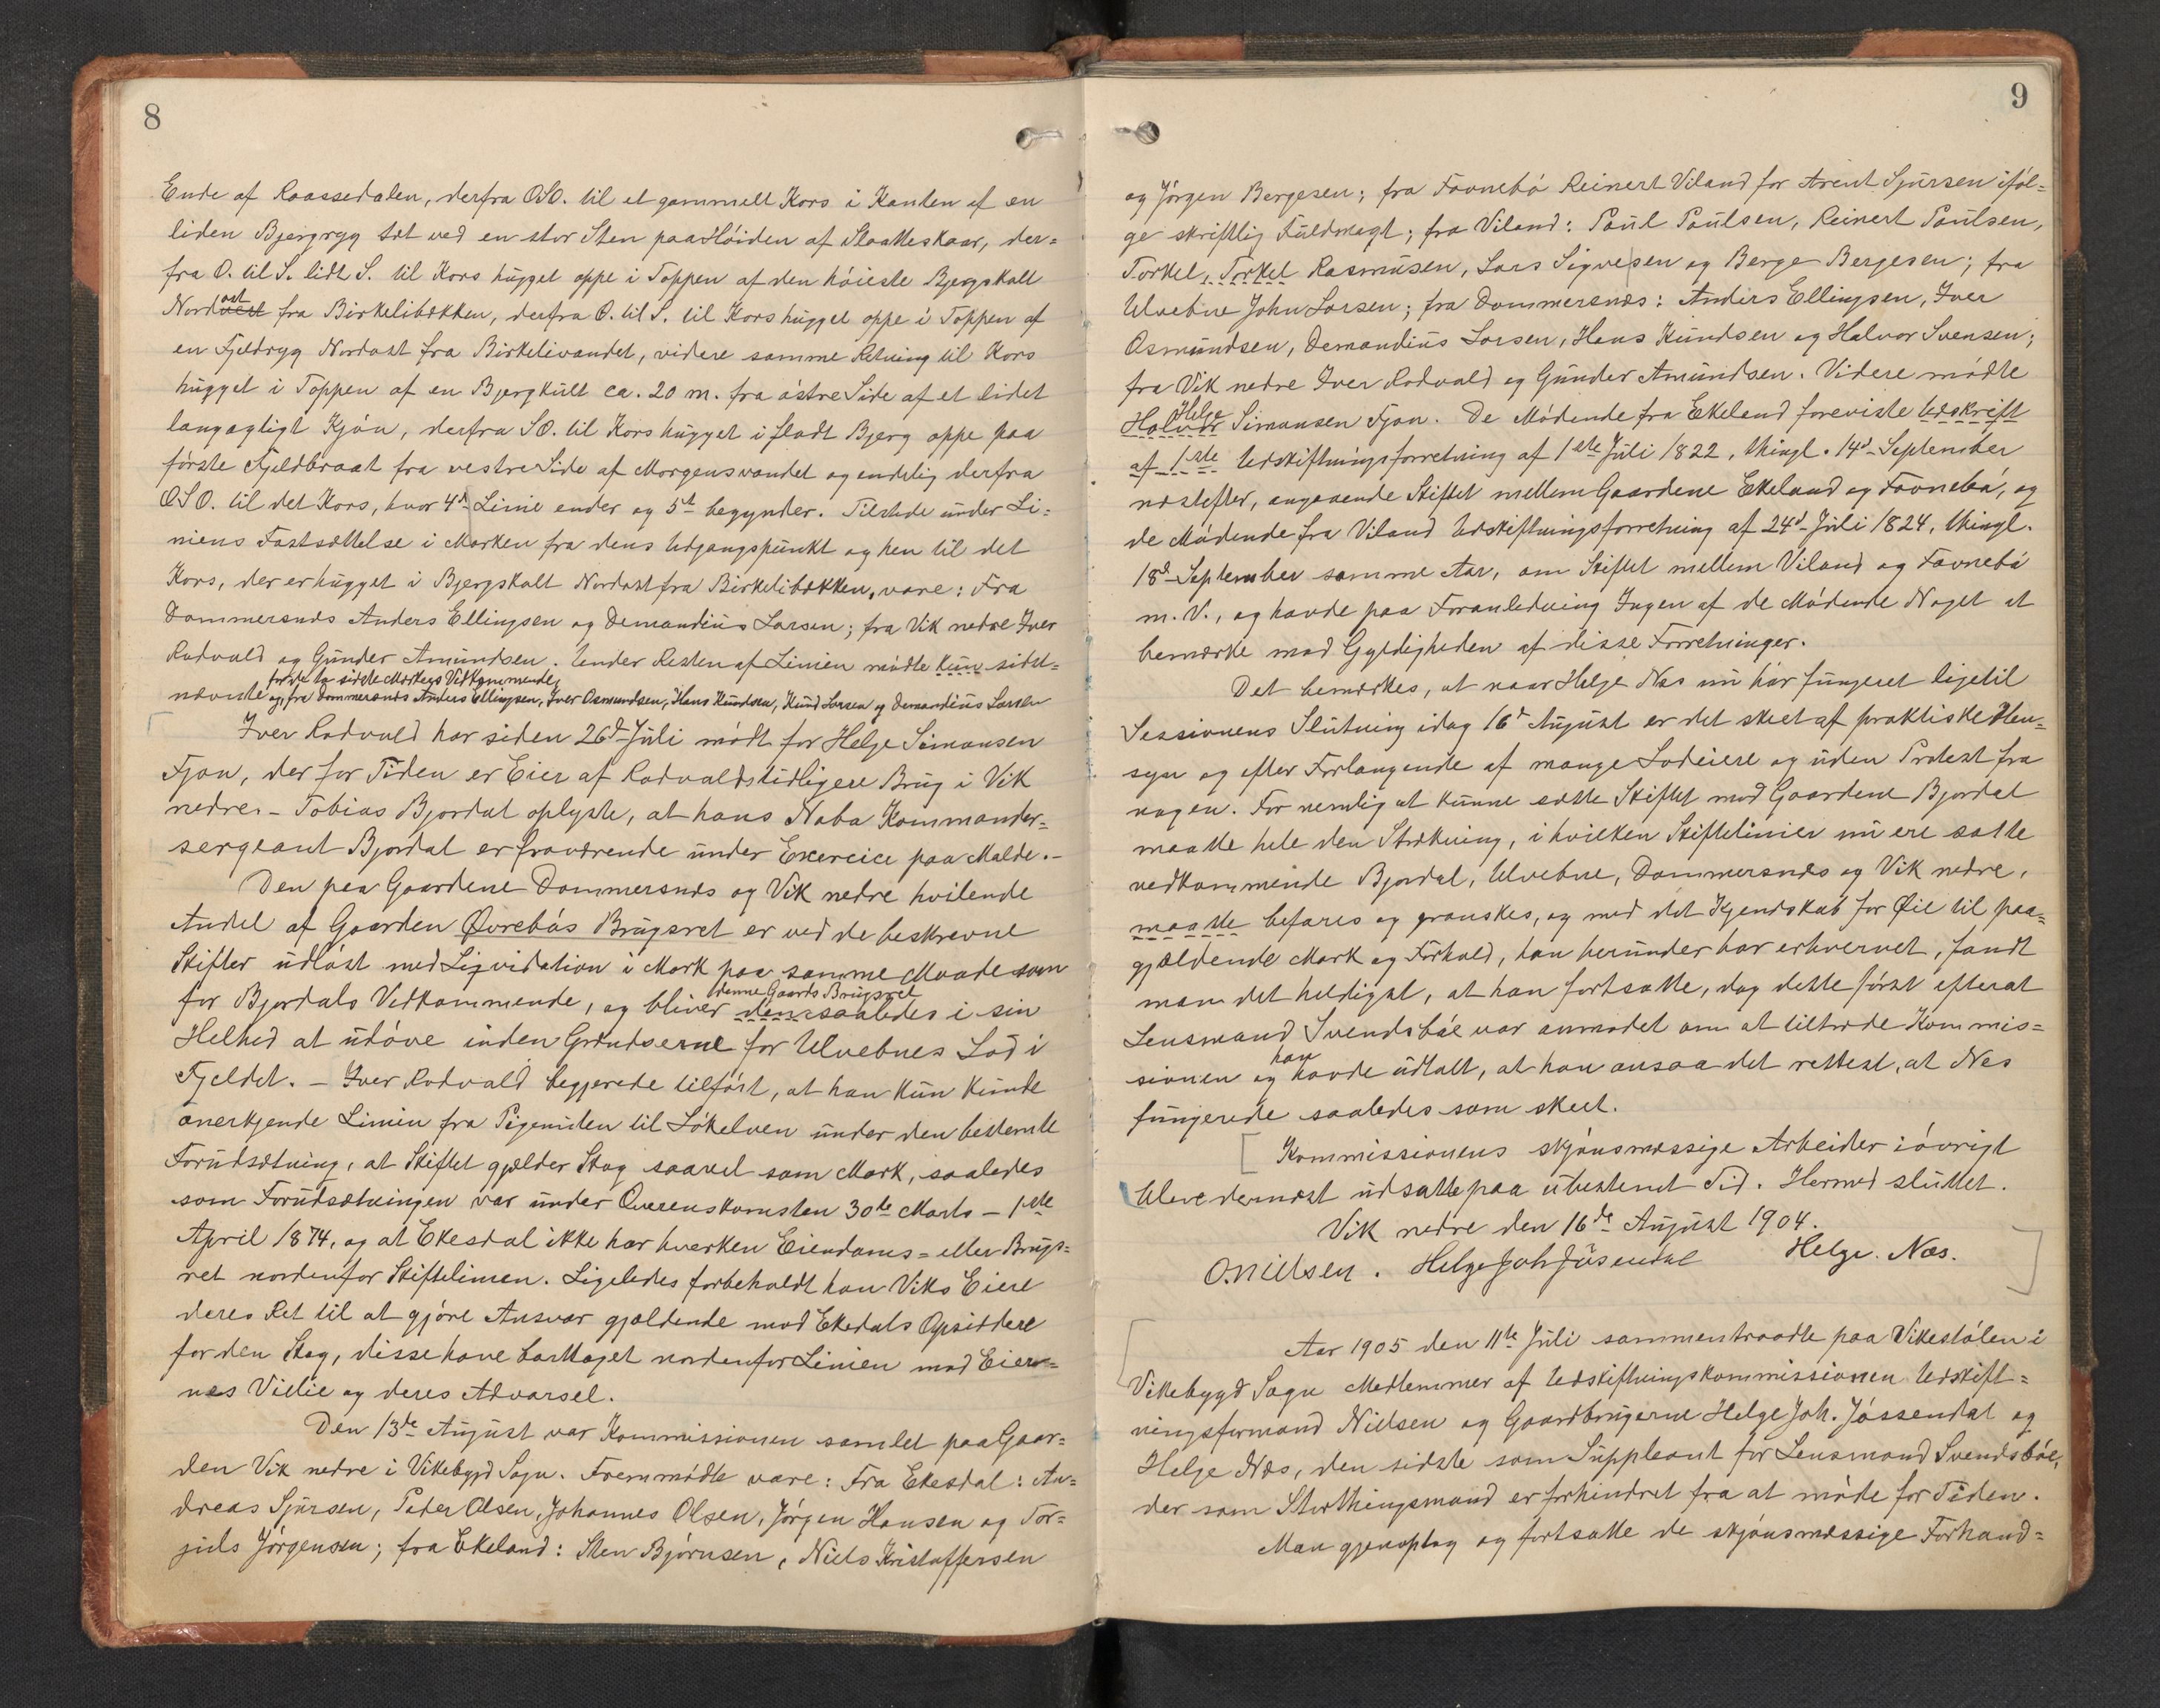 8
Ende af Raassedalen, derfra OSO. til et gammelt Kors i Kanten af en
liden Bjergryg tæt ved en stor Sten paa Høiden af Slaatteskaar, der=
fra O. til S. lidt S. til Kors hugget oppe i Toppen af den høieste Bjergskalt
Nordvest ost fra Birkelibækken, derfra O. til S. til Kors hugget oppe i Toppen af
en Fjeldryg Nordost fra Birkelivandet, videre samme Retning til Kors
hugget i Toppen af en Bjergkult ca. 20 m. fra østre Side af et lidet
langagligt Kjøn, derfra SO. til Kors hugget i fladt Bjerg oppe paa
første Fjeldbraat fra vestre Side af Morgensvandet og endelig derfra
OSO. til det Kors, hvor 4de Linie ender og 5te begynder. Tilstede under Li=
niens Fastsættelse i Marken fra dens Udgangspunkt og hen til det
Kors, der er hugget i Bjergskalt Nordost fra Birkelibækken, vare: Fra
Dommersnæs Anders Ellingsen og Demandius Larsen; fra Vik nedre Iver
Rodvald og Gunder Amundsen. Under Resten af Linien mødte kun sidst=
for de to sidste Mærkers Vedkommende,
nævnte og, fra Dommersnæs Anders Ellingsen, Iver Osmundsen, Hans Knudsen, Knud Larsen og Demandius Larsen
Iver Rodvald har siden 26de Juli mødt for Helge Simonsen
Fjon, der for Tiden er Eier af Rodvalds tidligere Brug i Vik
nedre. - Tobias Bjordal oplyste, at hans Nabo Kommander=
sergeant Bjordal er fraværende under Exercice paa Malde. -
Den paa Gaardene Dommersnæs og Vik nedre hvilende
Andel af Gaarden Øvrebøs Brugsret er ved de beskrevne
Skifter udløst med Liqvidation i Mark paa samme Maade som
for Bjordals Vedkommende, og bliver den denne Gaards Brugsret saaledes i sin
Helhed at udøve inden Grændserne for Ulvebnes Lod i
Fjeldet. - Iver Rodvald begjerede tilført, at han kun kunde
anerkjende Linien fra Pigeuden til Løkelven under den bestemte
Forudsætning, at Skiftet gjælder Skog saavel som Mark, saaledes
som Forudsætningen var under Overenskomsten 30te Marts - 1ste
April 1874, og at Ekesdal ikke har hverken Eiendoms= eller Brugs=
ret nordenfor Skiftelinien. Ligeledes forbeholdt han Viks Eiere
deres Ret til at gjøre Ansvar gjældende mod Ekedals Opsiddere
for den Skog, disse have borttaget nordenfor Linien mod Eier=
nes Villie og deres Advarsel.
Den 13de August var Kommissionen samlet paa Gaar=
den Vik nedre i Vikebygd Sogn. Fremmødte vare: Fra Ekesdal: An=
dreas Sjursen, Peder Olsen, Johannes Olsen, Jørgen Hansen og Tor=
juls Jørgensen; fra Ekeland: Sten Bjørnsen, Niels Kristoffersen
9
og Jørgen Bergesen; fra Fovnebø Reinert Viland for Arent Sjursen iføl=
ge skriftlig Fuldmagt; fra Viland: Poul Poulsen, Reinert Poulsen,
Torkel, Torkel Rasmusen, Lars Sigvesen og Berge Bergesen; fra
Ulvebne John Larsen; fra Dommersnæs: Anders Ellingsen, Iver
Osmundsen, Demandius Larsen, Hans Knudsen og Halvor Svensen;
fra Vik nedre Iver Rodvald og Gunder Amundsen. Videre mødte
Halvor Helge Simonsen Fjon. De Mødende fra Ekeland foreviste Udskrift
af 1ste Udskiftningsforretning af 1ste Juli 1822, thingl. 14de September
næstefter, angaaende Skiftet mellem Gaardene Ekeland og Fovnebø, og
de Mødende fra Viland Udskiftningsforretning af 24de Juli 1824, thingl.
18de September samme Aar, om Skiftet mellem Viland og Fovnebø
m. V., og havde paa Foranledning Ingen af de Mødende Noget at
bemærke mod Gyldigheden af disse Forretninger.
Det bemærkes, at naar Helge Næs nu har fungeret ligetil
Sessionens Slutning idag 16de August er det skeet af praktiske Hen=
syn og efter Forlangende af mange Lodeiere og uden Protest fra
nogen. For nemlig at kunne sætte Skiftet mod Gaardene Bjordal
maatte hele den Strækning, i hvilken Skiftelinier nu ere satte
vedkommende Bjordal, Ulvebne, Dommersnæs og Vik nedre,
maatte befares og granskes, og med det Kjendskab for Øie til paa=
gjældende Mark og Forhold, han herunder har erhvervet, fandt
man det heldigst, at han fortsatte, dog dette først efterat
Lensmand Svendsbøe var anmodet om at tiltræde Kommis=
sionen og han havde udtalt, at han ansaa det rettest, at Næs
fungerede saaledes som skeet.
Kommissionens skjønsmæssige Arbeider iøvrigt
bleve dernæst udsatte paa ubestemt Tid. Hermed sluttet.
Vik nedre den 16de August 1904.
O. Nielsen. Helge Joh Jøsendal Helge. Næs.
Aar 1905 den 11te Juli sammentraadte paa Vikestølen i
Vikebygd Sogn Medlemmer af Udskiftningskommissionen Udskift=
ningsformand Nielsen og Gaardbrugerne Helge Joh. Jøssendal og
Helge Næs, den sidste som Suppleant for Lensmand Svendsbøe,
der som Storthingsmand er forhindret fra at møde for Tiden.
Man gjenoptog og fortsatte de skjønsmæssige Forhand=